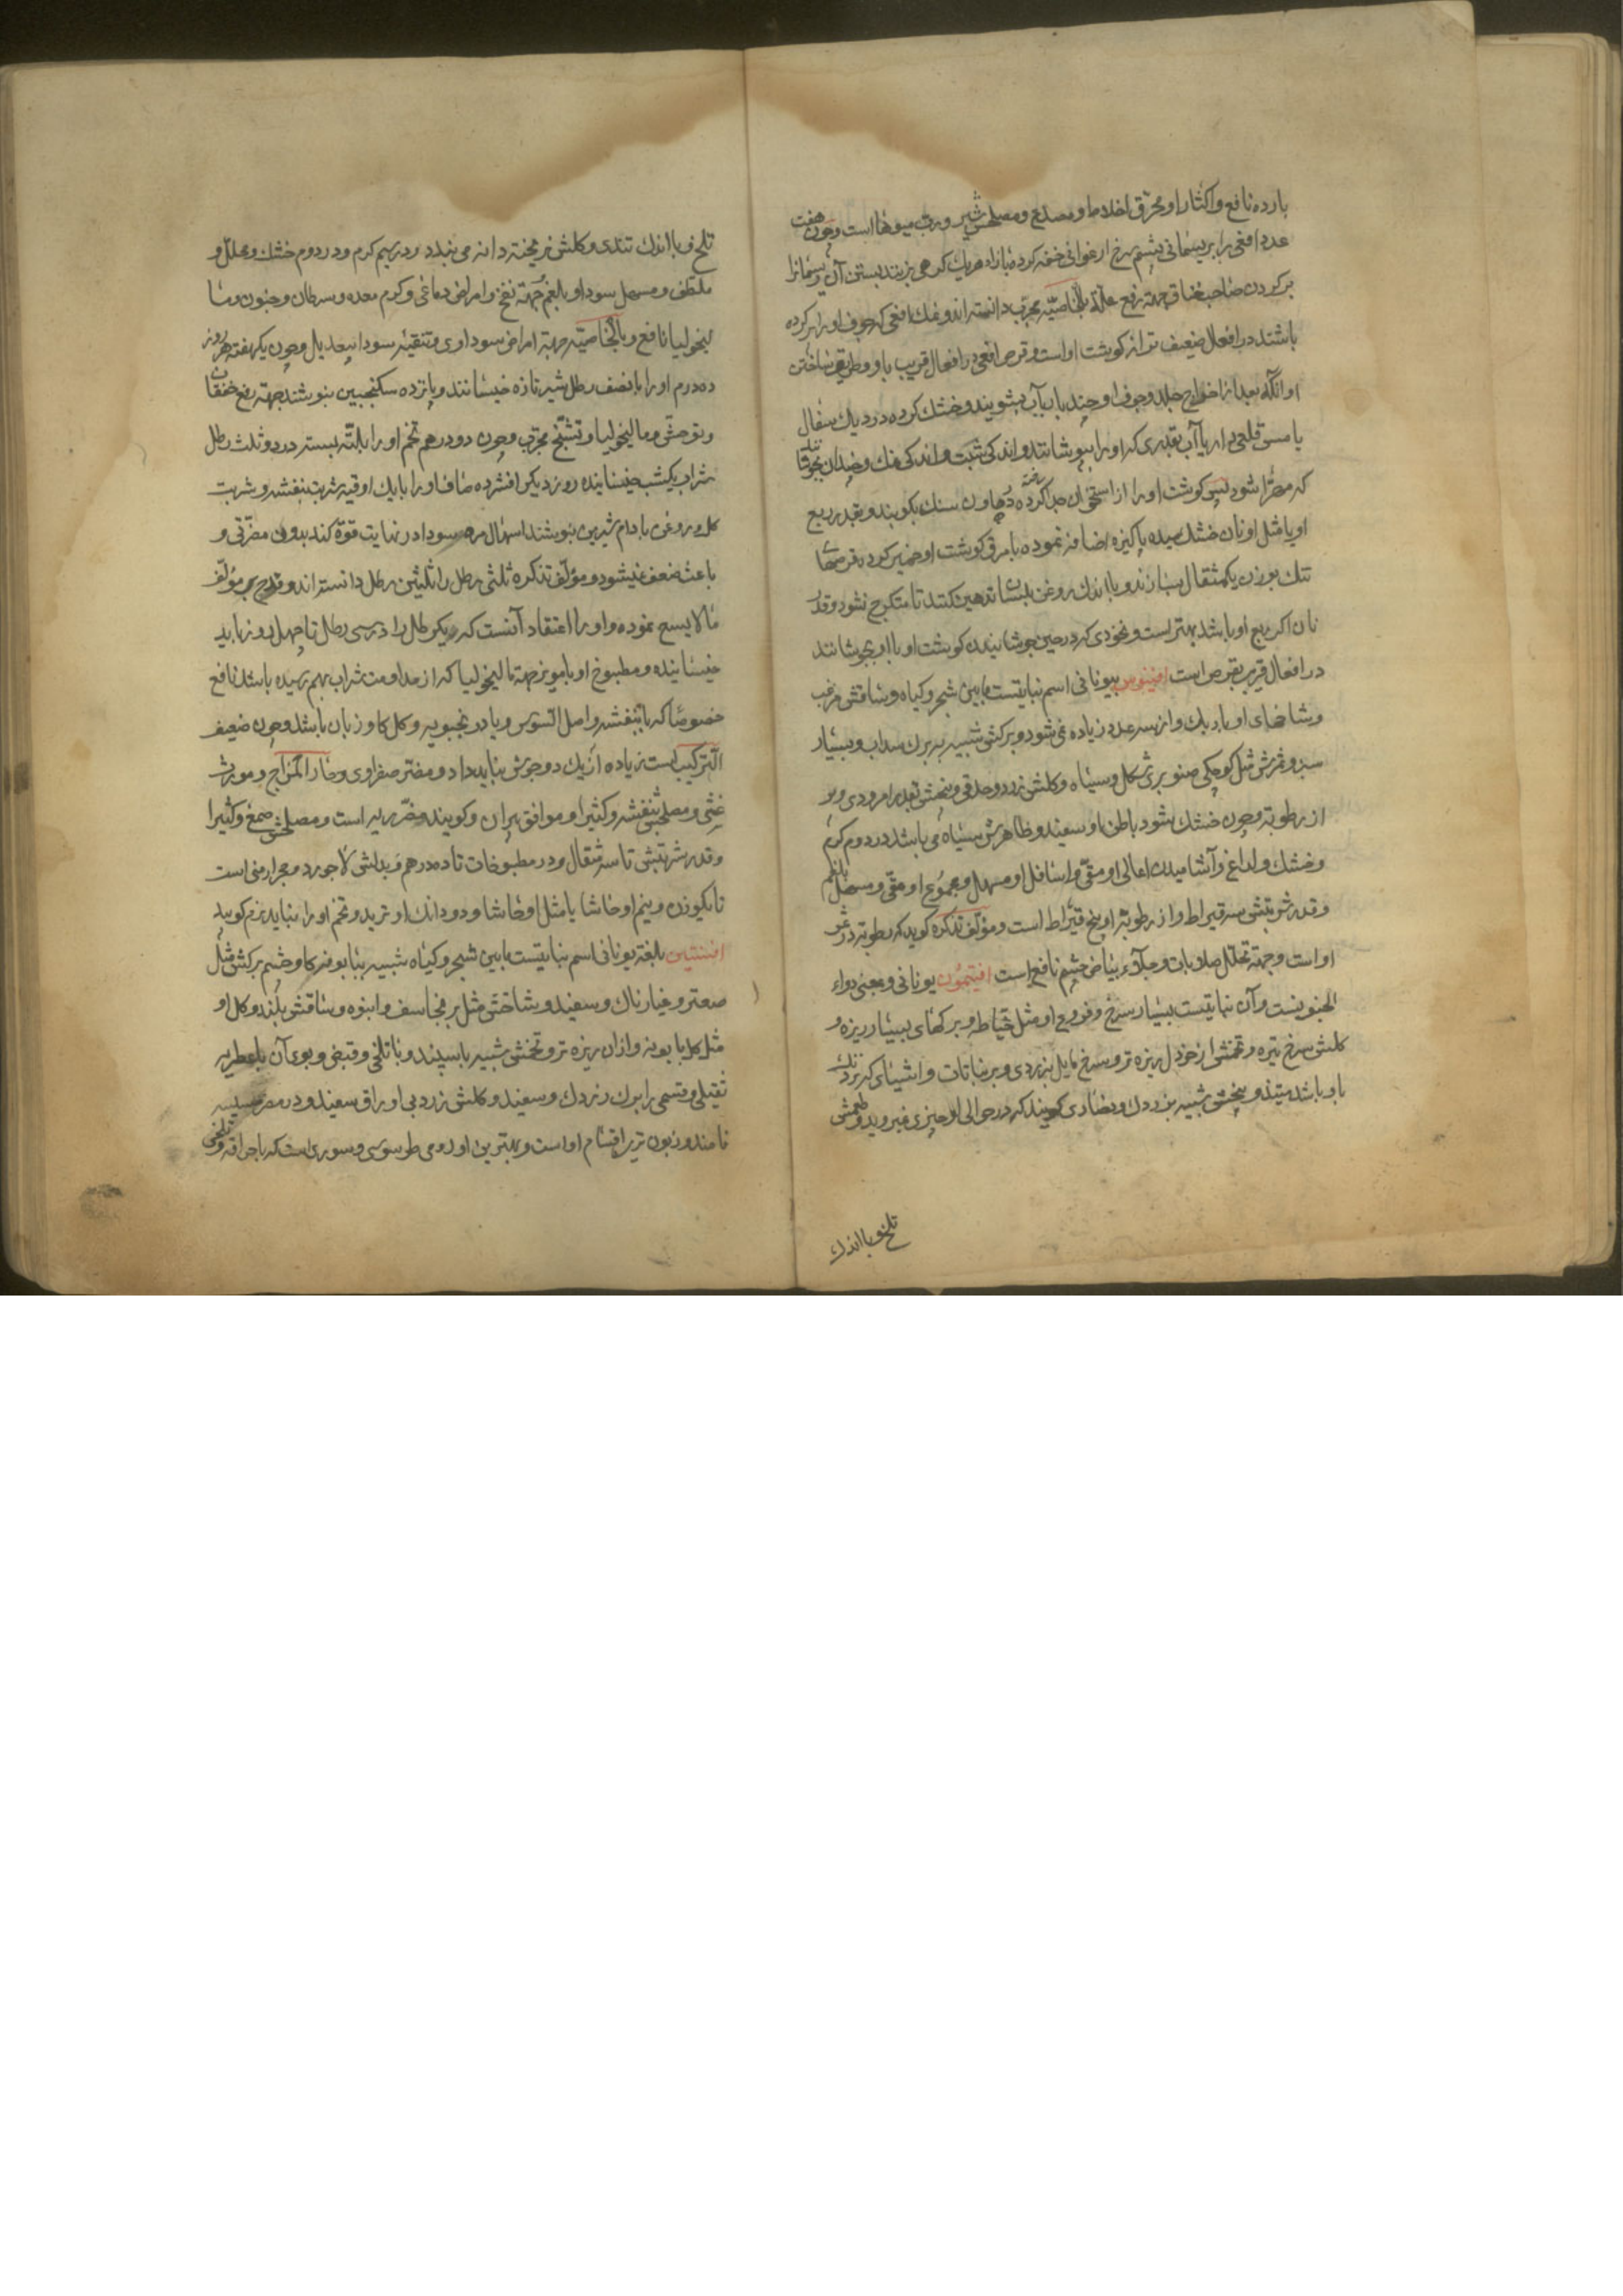 بارده نافع و اکثار او محرق اخلاط و مصدع و مصلحش شیر و رب میوها است و چون هفت
عدد افعی را بریسمانی پشم سرخ ارغوانی خفه کرده بازاء هریک کرهی بزنند بستن آن ریسمانرا
بر کردن صاحب خناق جهة رفع علة بالخاصیّه مجرب دانسته اند و نمک افعی که جوف او را پر کرده
باشند در افعال ضعیف تر از کوشت او است و قرص افعی در افعال قریب باو و طریق ساختن
او آنکه بعد از اخراج جلد و جوف او چند بار بآب بشویند و خشک کرده در دیک سفال
یا مس قلعی دار باآب بقدری که او را بپوشانند و اندکی شبت و اندکی نمک و چندان بجوشانند
که مهرّا شود پس کوشت او را از استخوان جدا کرده در هاون سنک بکوبند و بقدر ربع
او یا مثل او نان خشک سمید پاکیزه اضافه نموده با مرق کوشت او خمیر کرده قرصها
تنک بوزن یکمثقال بسازند و با اندک روغن بلسان تدهین کنند تا متکرج نشود و قدر
نان اکر ربع او باشد بهتر است و نخودی که در حین جوشانیدن کوشت او با او بجوشانند
در افعال قریب بقرص است افینوس بیونانی اسم نباتیست مابین شجر و کیاه و ساقش مزغب
و شاخهای او باریک و از سه عدد زیاده نمی‌شود و برکش شبیه به برک سداب و بسیار
سبز و ثمرش مثل کوچکی صنوبری شکل و سیاه و کلش زرد و حدقی و بیخش بقدر امرودی و پر
از رطوبة و چون خشک شود باطن او سفید و ظاهرش سیاه می باشد در دوم کرم
و خشک و لداغ و آشامیدن اعالی او مقیّ و اسافل او مسهل و مجموع او مقّی و مسهل بلغم
و قدر شربتش سه قیراط و از رطوبة او پنج قیراط است و مؤلف تذکره کوید که رطوبة در ثمر
او است و جهة تحلیل صلابات و جلاء بیاض چشم نافع است افیتمون یونانی و بمعنی دواء
الجنونست و آن نباتیست بسیار سرخ و فروع او مثل خیاطه و برکهای بسیار ریزه و
کلش سرخ تیره و تخمش از خردل ریزه تر و سرخ مایل بزردی و بر نباتات و اشیائی که نزدیک
باو باشد میتند و بیخش شبیه بزردک و بغدادی کویند که در حوالی او چیزی نمیروید و طعمش
تلخ و با اندک
تلخ و با اندک تندی و کلش فرو ریخته دانه می بندد و در سیم کرم و در دوم خشک و محلل و
ملطف و مسهل سودا و بلغم و جهة نفخ و امراض دماغی و کرم معده و سرطان و جنون و ما
لیخولیا نافع و بالخاصیّه جهة امراض سوداوی و تنقیۀ سودا بیعدیل و چون یکهفته هر روز
ده درم او را با نصف رطل شیر تازه خیسانند و با پانزده سکنجبین بنوشند جهة رفع خفقان
و توحش و مالیخولیا و تشنّج مجرب و چون دو درهم تخم او را بلتّه بسته در دو ثلث رطل
شراب یکشب خیسانیده روز دیکر افشرده صاف او را با یک اوقیه شربت بنفشه و شربت
کل و روغن بادام شیرین بنوشند اسهال مره سودا در نهایت قوّة کند بدون مضرّتی و
باعث ضعف نمیشود و مؤلف تذکره ثلثی رطل را ثلثین رطل دانسته اند و قدح بر مؤلف
مالایسع نموده و او را اعتقاد آنست که یکرطل را در سی رطل تا چهل روز باید
خیسانیده و مطبوخ او با مویز جهة مالیخولیا که از مداومت شراب بهم رسیده باشد نافع
خصوصا که با بنفشه و اصل السّوس و بادرنجبویه و کل کاوزبان باشد و چون ضعیف
الترکیب است زیاده از یک دو جوش نباید داد و مضر صفراوی و حار المزاج و مورث
غثی و مصلحش بنفشه و کثیرا و موافق پیران و کویند مضرّ ریه است و مصلحش صمغ و کثیرا
و قدر شربتش تا سه مثقال و در مطبوخات تا ده درهم و بدلش لاجورد و حجر ارمنی است
تا یکوزن و نیم او حاشا یا مثل او حاشا و دو دانک او تربد و تخم او را نباید نرم کوبید
افسنتین بلغة یونانی اسم نباتیست مابین شجر و کیاه شبیه ببابونه کاوچشم برکش مثل
صعتر و غبارناک و سفید و شاخش مثل برنجاسف و انبوه و ساقش بلند و کل او
مثل کل بابونه و از ان ریزه تر و تخمش شبیه باسپند و باتلخی و قبض و بوی آن باعطریه
ثقیلی و قسمی را برک زردک و سفید و کلش زرد بی اوراق سفید و در مصر دمسیسه
نامند و زبون ترین اقسام او است و بهترین او رومی طرسوسی و سوری است که باحرافه و تلخی